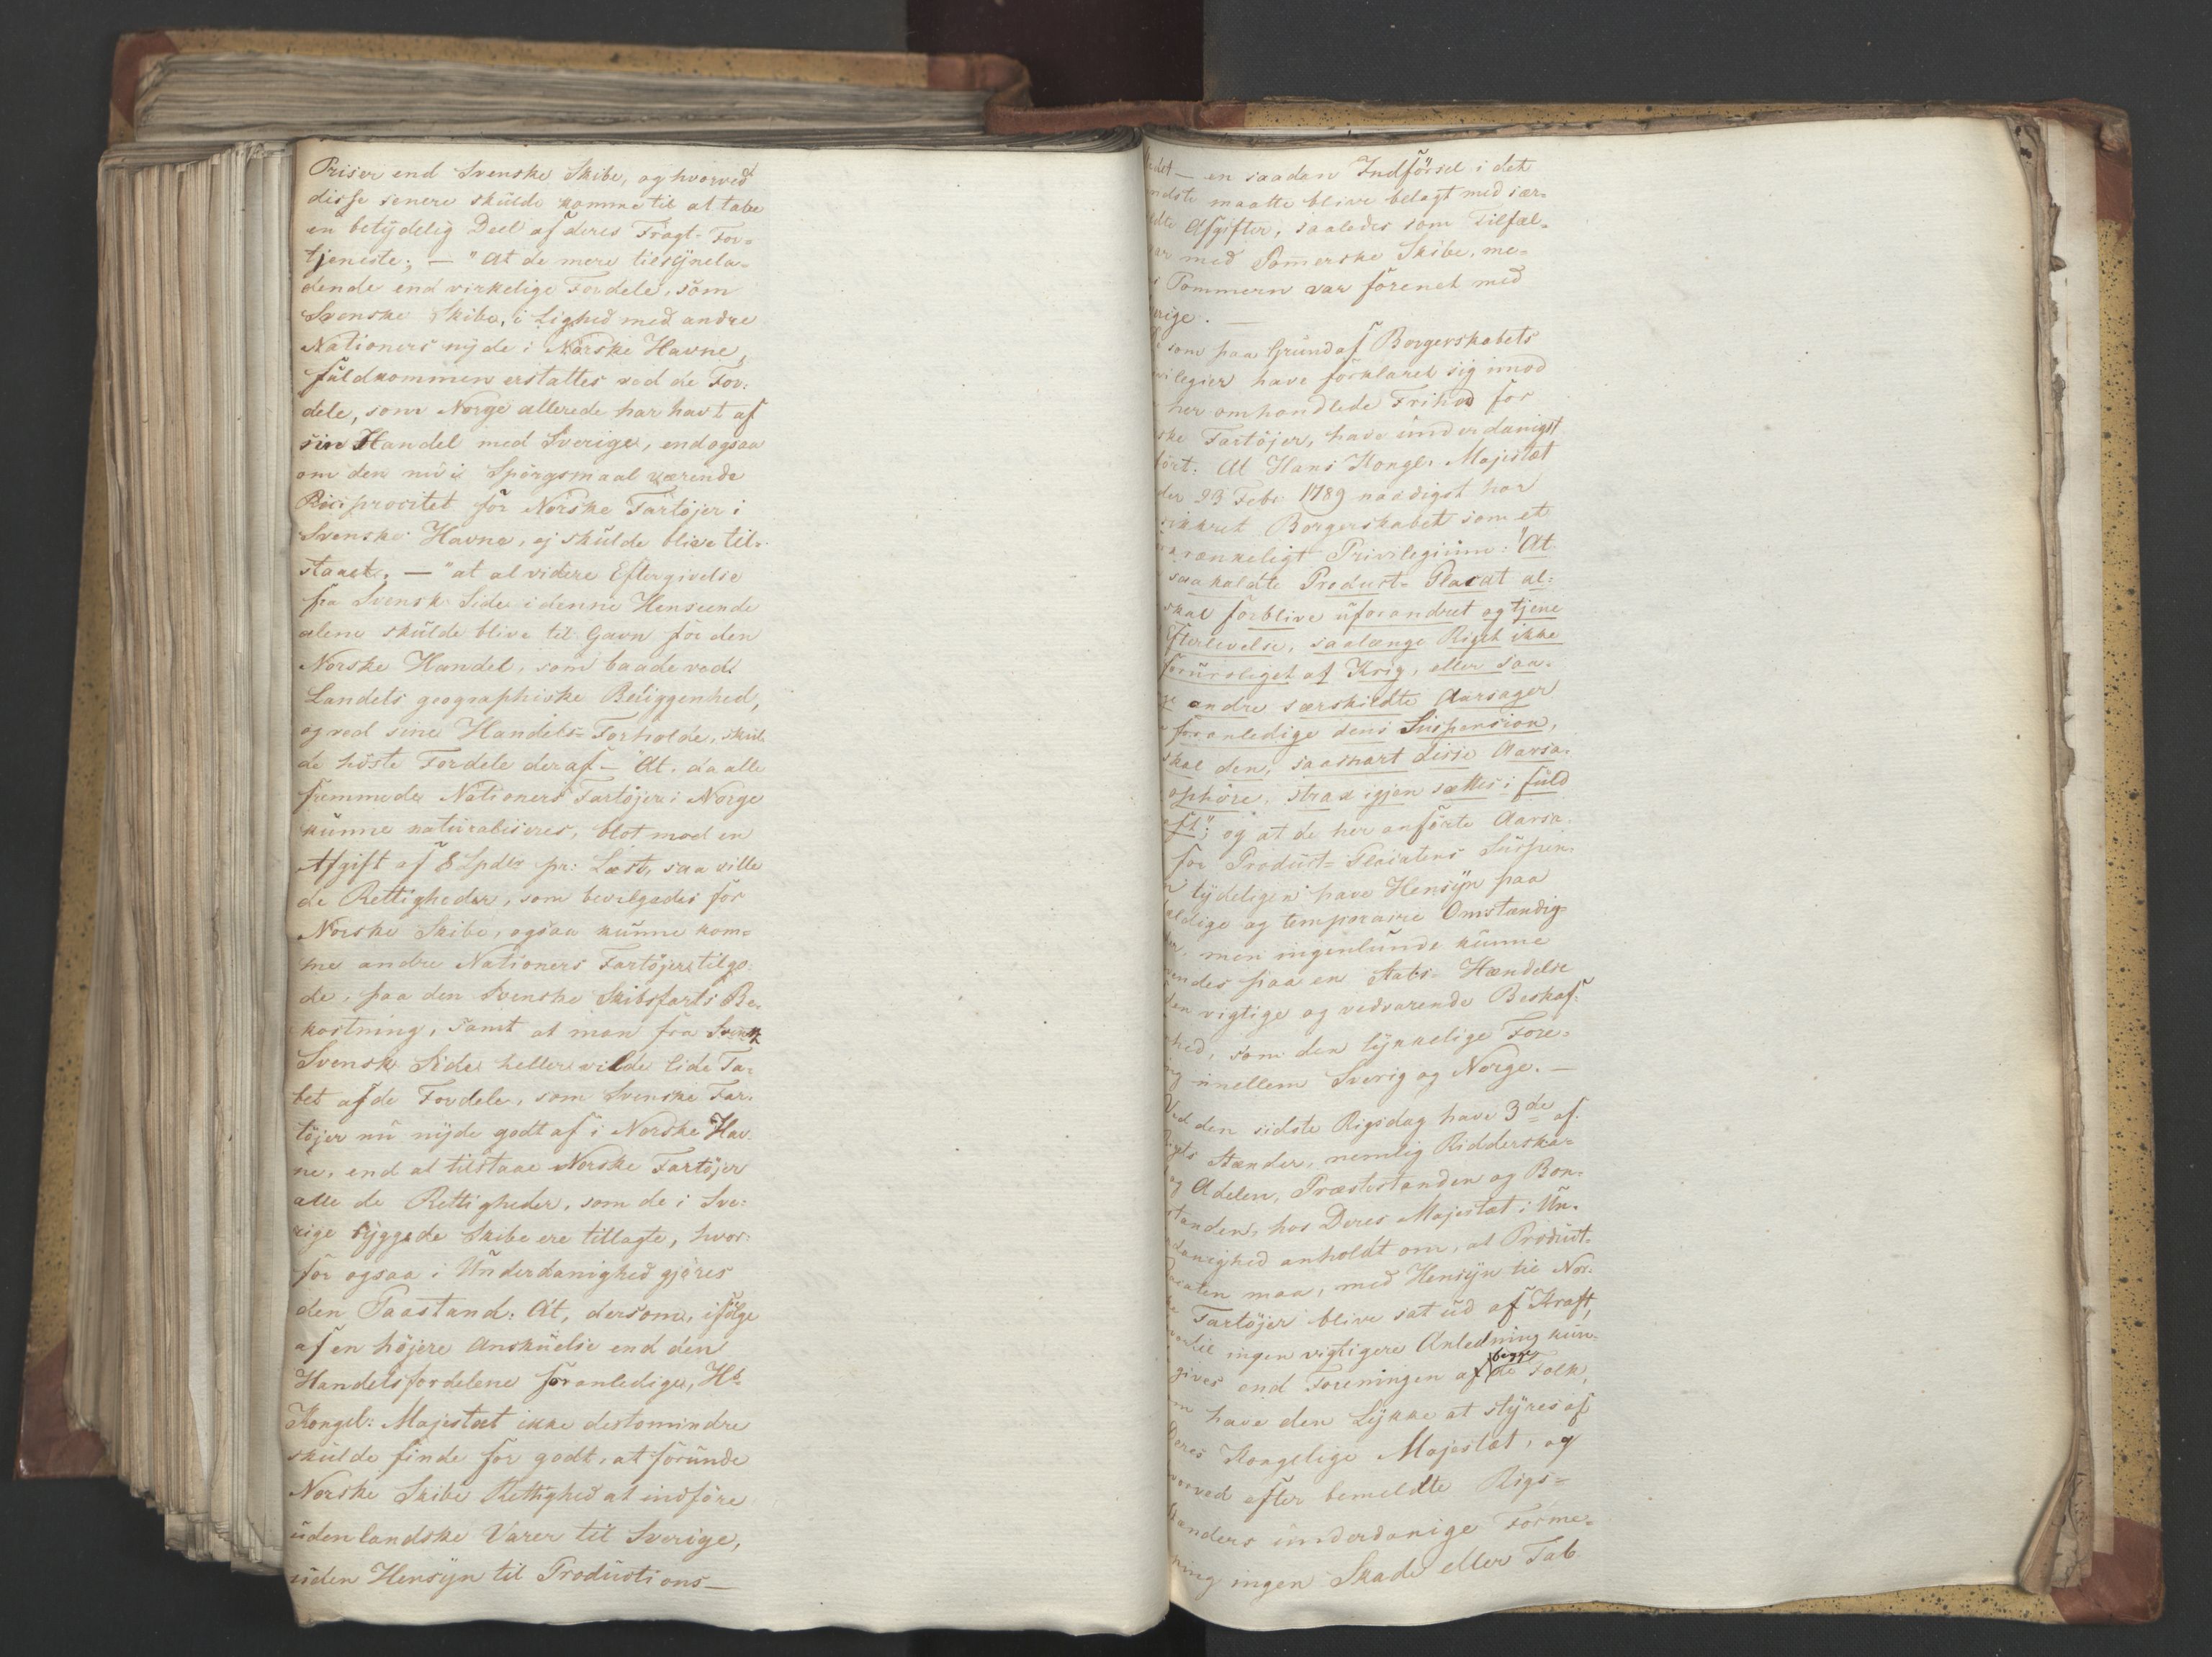 Priser end Svenske Skibe, og hvorved
disse senere skulde komme til at tabe
en betydelig Deel af deres Fragt-For-
tjeneste; — "At de mere tilsynela-
dende end virkelige Fordele, som
Svenske Skibe, i Lighed med andre
Nationers nyde i Norske Havne,
fuldkommen erstattes ved de For-
dele, som Norge allerede har havt af
sin Handel med Sverige, endogsaa
om den nu i Spörgsmaal værende
Reciprocitet for Norske Fartöjer i
Svenske Havne, ej skulde blive til-
staaet. — "at al videre Eftergivelse
fra Svensk Side i denne Henseende
alene skulde blive til Gavn for den
Norske Handel, som baade ved
Landets geographiske Beliggenhed,
og ved sine Handels-Forholde, skul-
de höste Fordele deraf — "At, da alle
fremmede Nationers Fartöjer i Norge
kunne naturaliseres, blot mod en
Afgift af 8 Spdlr pr: Læst, saa ville
de Rettigheder, som bevilgades for
Norske Skibe, ogsaa kunne kom-
me andre Nationers Fartöjer tilgo-
de, paa den Svenske Skibsfarts Be-
kostning, samt at man fra Svensk
Svensk Side heller vilde lide Ta-
bet af de Fordele, som Svenske Far-
töjer nu nyde godt af i Norske Hav-
ne, end at tilstaae Norske Fartöjer
alle de Rettigheder, som de i Sve-
rige byggede Skibe ere tillagte, hvor-
for ogsaa i Underdanighed gjöres
den Paastand: At, dersom, ifölge
af en höjere Anskuelse end den
Handelsfordelene foranlediger, Hs
Kongel: Majestæt ikke destomindre
skulde finde for godt, at forunde
Norske Skibe Rettighed at indföre
udenlandske Varer til Sverige,
uden Hensyn til Productions-
stedet — en saadan Indförsel i det
mindste maatte blive belagt med sær-
skildte Afgifter, saaledes som Tilfæl-
var med Pommerske Skibe, me-
Pommern var forenet med
erige. —
som paa Grund af Borgerskabets
vilegier have forklaret sig imod
her omhandlede Frihed for
ske Fartöjer, have underdanigst
fört: At Hans Kongl. Majestæt
der 23 Febr 1789 naadigst har
sikkret Borgerskabet som et
rænkeligt Privilegium: "At
saakaldte Product-Placat al-
skal forblive uforandret og tjene
fterlevelse, saalænge Riget ikke
foruroliget af Krig, eller saa-
ge andre særskildte Aarsager
foranledige dens Suspension,
skal den, saasnart disse Aarsa-
ophöre, strax igjen sættes i fuld
aft"; og at de her anförte Aarsa-
for Product-Placatens Suspen-
tydeligen have Hensyn paa
ældige og temporaire Omstændig-
er, men ingenlunde kunne
endes paa en Stats-Hændelse
den vigtige og vedvarende Beskaf-
hed, som den lykkelige Fore-
ng imellem Sverig og Norge. —
Ved den sidste Rigsdag have 3de af
Rigets Stænder, nemlig Ridderska-
og Adelen, Præstestanden og Bon-
standen, hos Deres Majestæt i Un-
danighed anholdt om, at Product-
lacaten maa, med Hensyn til Nor-
Fartöjer blive sat ud af Kraft,
vortil ingen vigtigere Anledning kun-
gives end Foreningen af begge de Folk,
m have den Lykke at styres af
Deres Kongelige Majestæt, og
vorved efter bemeldte Rigs-
tænders underdanige Forme-
ning ingen Skade eller Tab